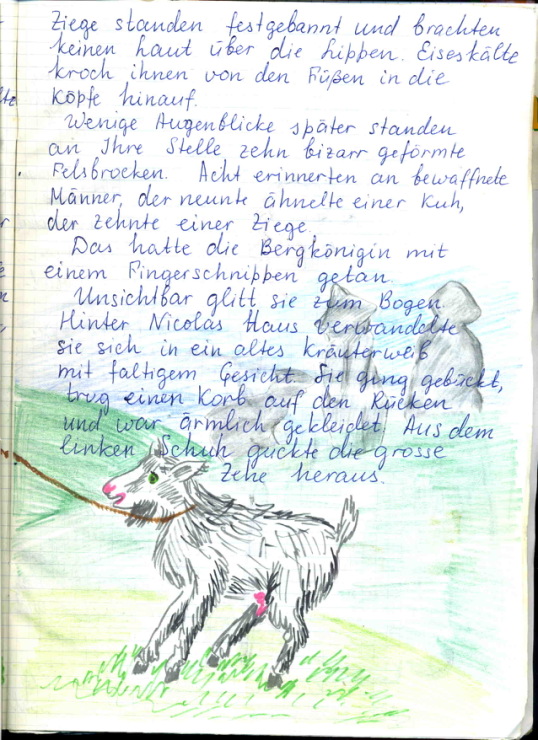 Ziege standen festgebannt und brachten
keinen haut über die Lippen. Eiseskälte
kroch ihnen von den Füßen in die
Köpfe hinauf.
Wenige Augenblicke später standen
an Ihre Stelle zehn bizarr geförmte
Felsbrocken. Acht erinnerten an bewaffnete
Männer, der neunte ähnelte einer Kuh,
der zehnte einer Ziege.
Das hatte die Bergkönigin mit
einem Fingerschnippen getan.
Unsichtbar glitt sie zum Bogen.
Hinter Nicolas Haus verwandelte
sie sich in ein altes Kräuterweiß
mit faltigem Gesicht. Sie ging gebückt,
trug einen Korb auf den Rücken
und war ärmlich gekleidet. Aus dem
linken Schuh guckte die grosse
Zehe heraus.